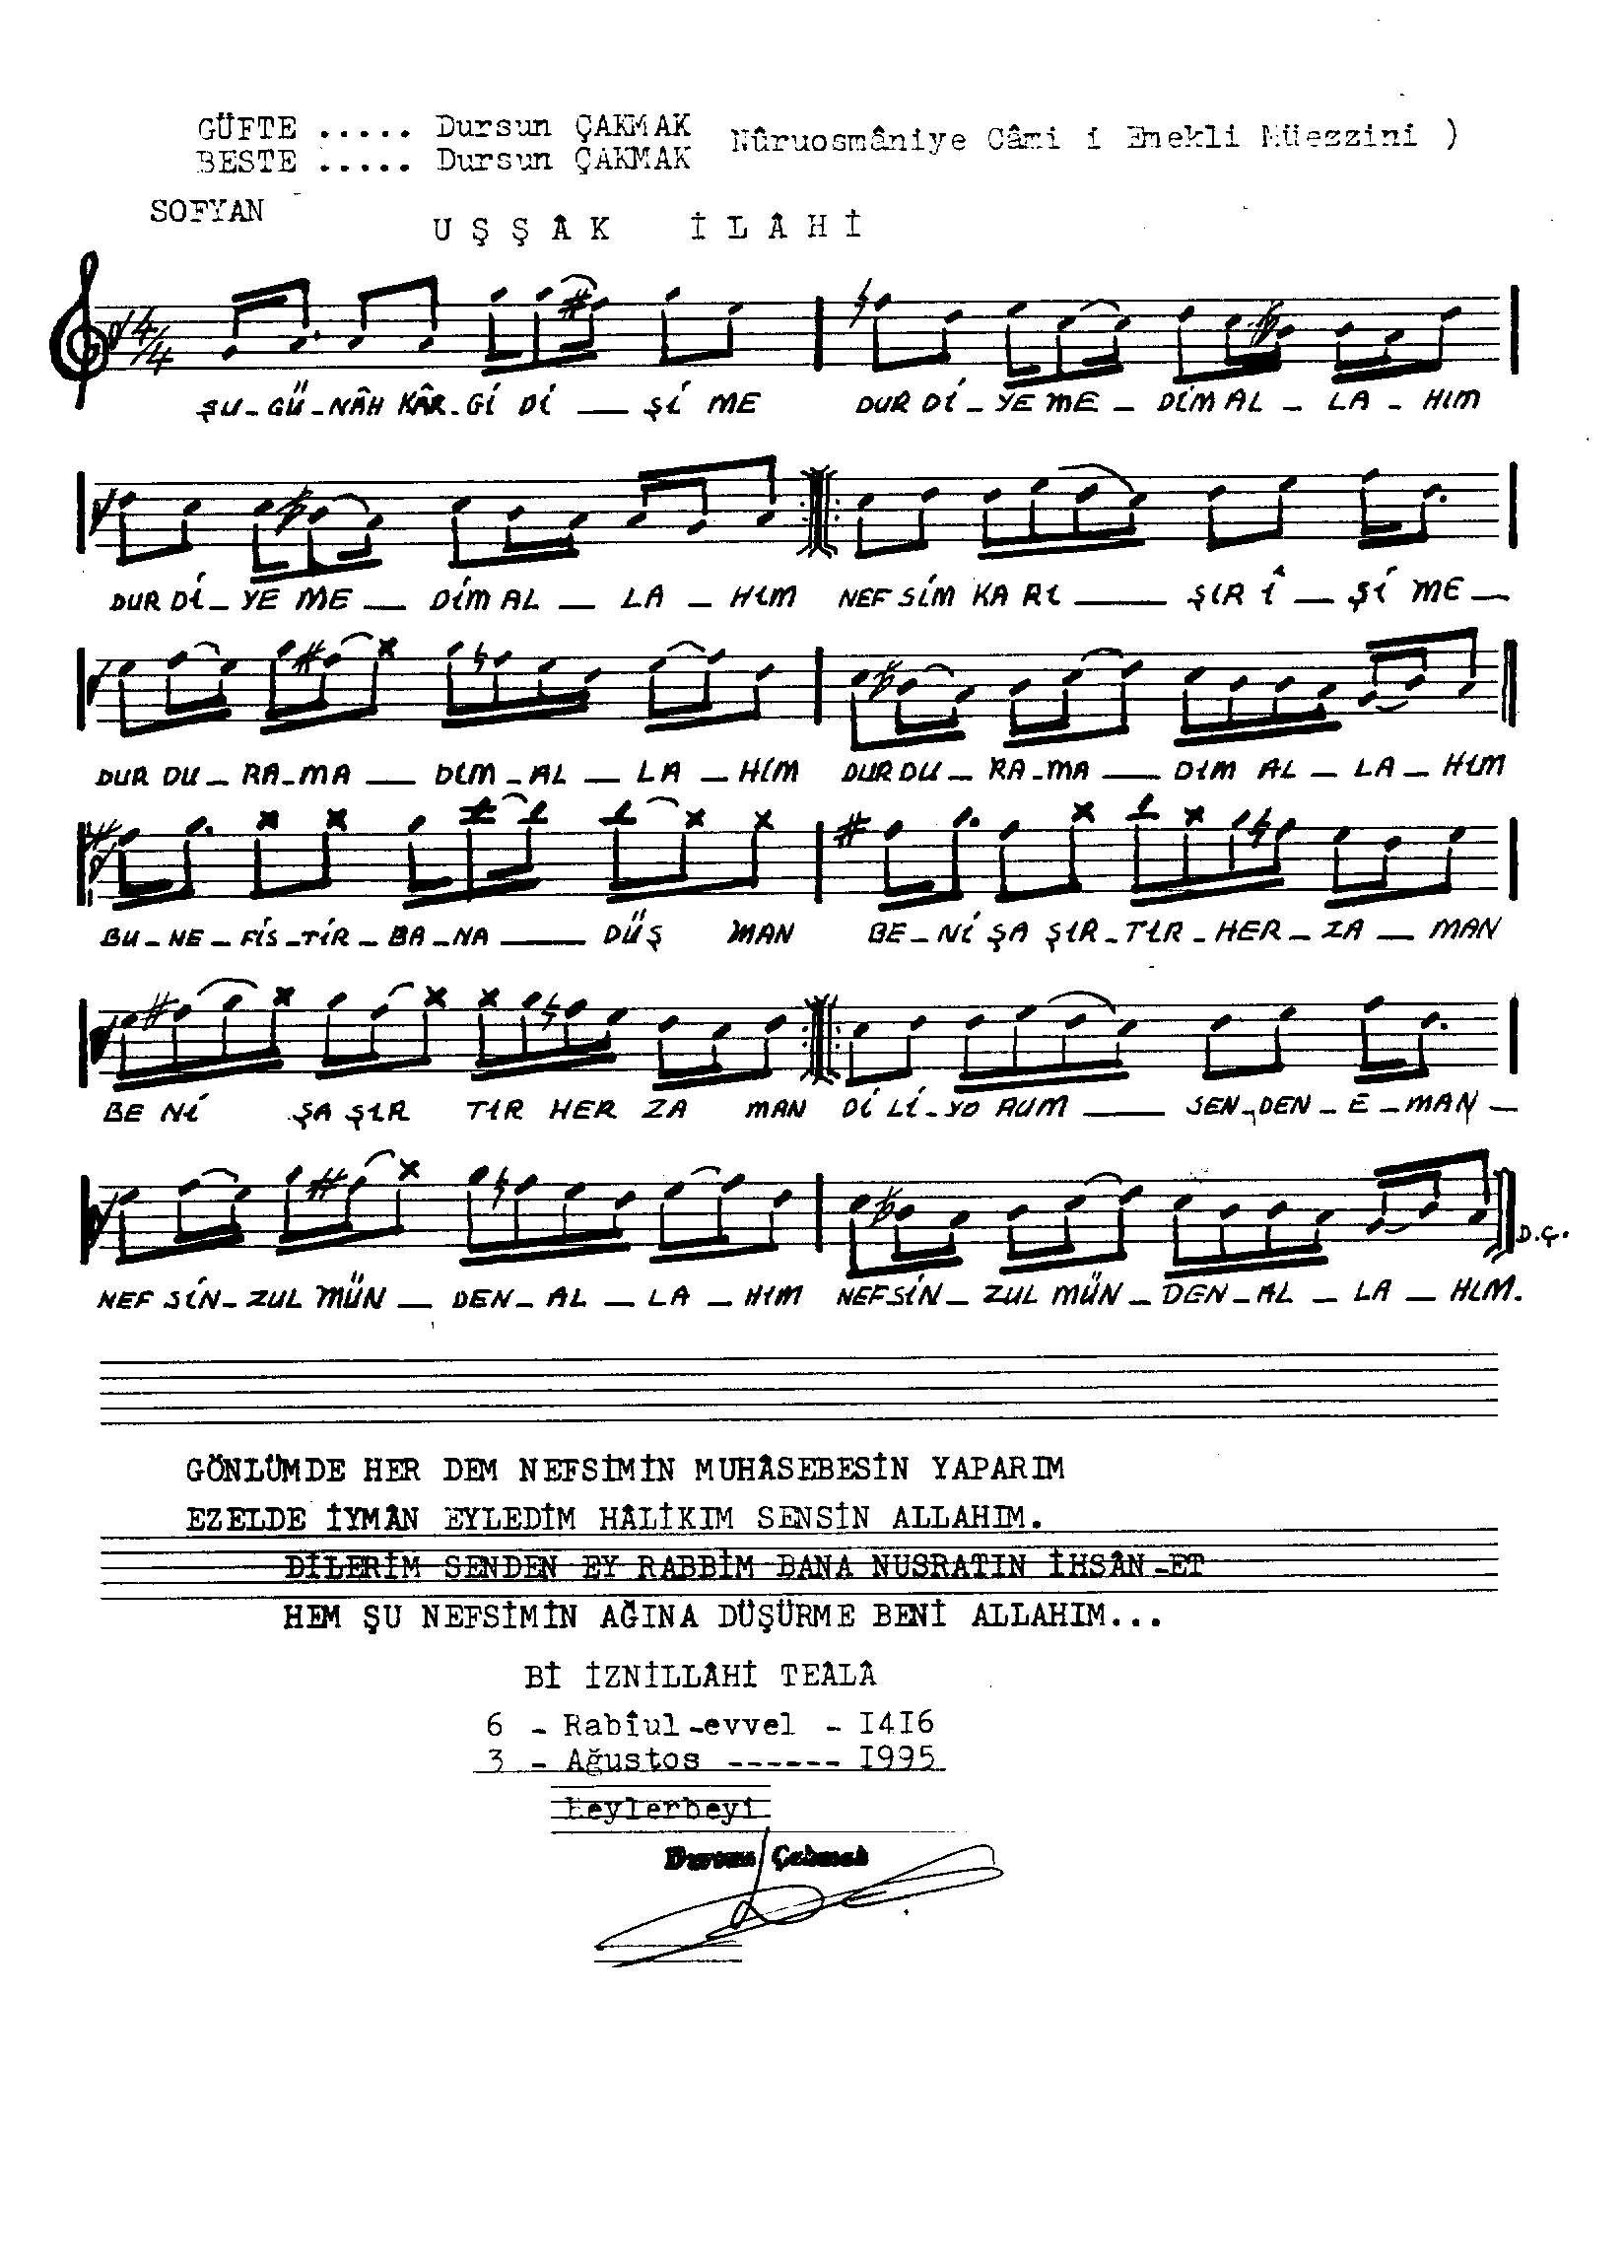 GÜFTE ..... Dursun ÇAKMAK Nûruosmâniye Câmi i Emekli Müezzini )
BESTE ..... Dursun ÇAKMAK
SOFYAN
UŞŞÂK İLÂHİ
4/4
ŞU-GÜ-NÂH KÂR-Gİ Dİ — Şİ ME DUR Dİ-YE ME - DİM AL - LA - HIM
DUR Dİ-YE ME — DİM AL — LA - HIM NEF SİM KA RI — ŞIR İ — Şİ ME —
DUR DU-RA-MA — DIM-AL — LA - HIM DUR DU-RA-MA — DIM AL — LA - HIM
BU-NE-FİS-TİR-BA-NA — DÜŞ MAN BE-Nİ ŞA ŞIR-TIR-HER-ZA — MAN
BE Nİ ŞA ŞIR TIR HER ZA MAN Dİ Lİ-YO RUM — SEN-DEN-E-MAN —
NEF SİN-ZUL MÜN — DEN-AL — LA - HIM NEF SİN-ZUL MÜN-DEN-AL - LA - HIM.
D.Ç.
GÖNLÜMDE HER DEM NEFSİMİN MUHÂSEBESİN YAPARIM
EZELDE İYMÂN EYLEDİM HÂLİKIM SENSİN ALLAHIM.
DİLERİM SENDEN EY RABBİM BANA NUSRATIN İHSÂN-ET
HEM ŞU NEFSİMİN AĞINA DÜŞÜRME BENİ ALLAHIM...
Bİ İZNİLLÂHİ TEÂLÂ
6 - Rabîul-evvel - I4I6
3 - Ağustos ------ I995
Beylerbeyi
Dursun Çakmak